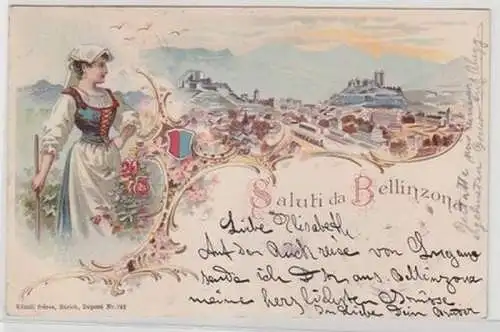 Saluti da Bellinzona
Liebe Elisabeth
Auf der Rückreise von Lugano
sende ich Dir aus Bellinzona
meine herzlichsten Grüsse
In Liebe Dein
Künzli frères, Zürich, Deponi Nr. 742